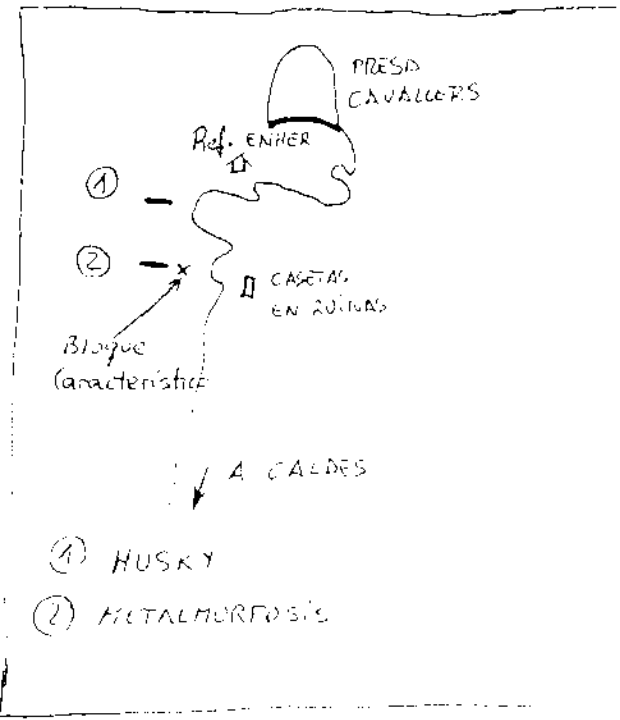 PRESA
CAVALLERS
Ref. ENHER
①
②
CASETAS
EN RUINAS
Bloque
Característico
A CALDES
① HUSKY
② METALMORFOSIS